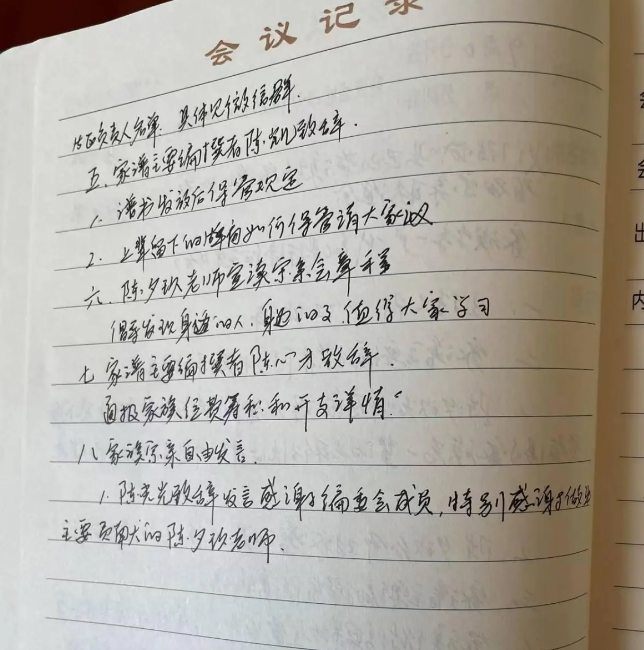 会议记录
片区负责人名单.具体见微信群.
五.家谱主要编撰者陈 致辞.
1.谱书发放后保管规定
2.上辈留下的 如何保管请大家议
六.陈夕玖老师宣读宗亲会章
倡导发现身边的人.身边的事.值得大家学习
七.家谱主要编撰者陈心才致辞.
面报家族 款筹积和开支详情.
八.家族宗亲自由发言.
1.陈 光致辞发言感谢了编委会成员,特别感谢了做出
主要贡献大的陈夕玖老师.